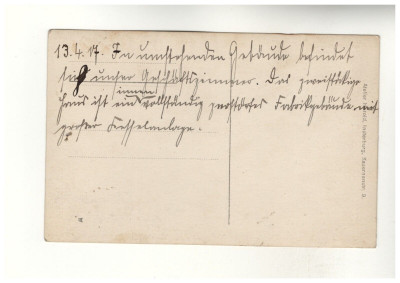 13.4.17. In umstehenden Gebäude befindet
sich unser Geschäftszimmer. Das zweistöckige
Haus ist ein innen vollständig zerstörtes Fabrikgebäude mit
großer Kesselanlage.